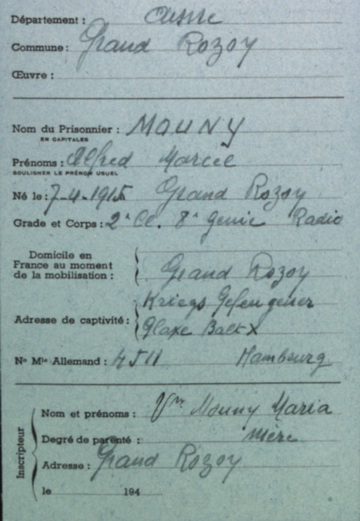 Département : Aisne
Commune : Grand Rozoy
Œuvre :
Nom du Prisonnier : MOUNY
EN CAPITALES
Prénoms : Alfred Marcel
SOULIGNER LE PRÉNOM USUEL
Né le : 7-4-1915 Grand Rozoy
Grade et Corps : 2e Cl. 8e Génie Radio
Domicile en
France au moment
de la mobilisation : Grand Rozoy
Kriegs Gefengener
Adresse de captivité :
No Mle Allemand : 4511 Hambourg
Inscripteur
Nom et prénoms : Vve Mouny Maria
Degré de parenté : mère
Adresse : Grand Rozoy
le 194